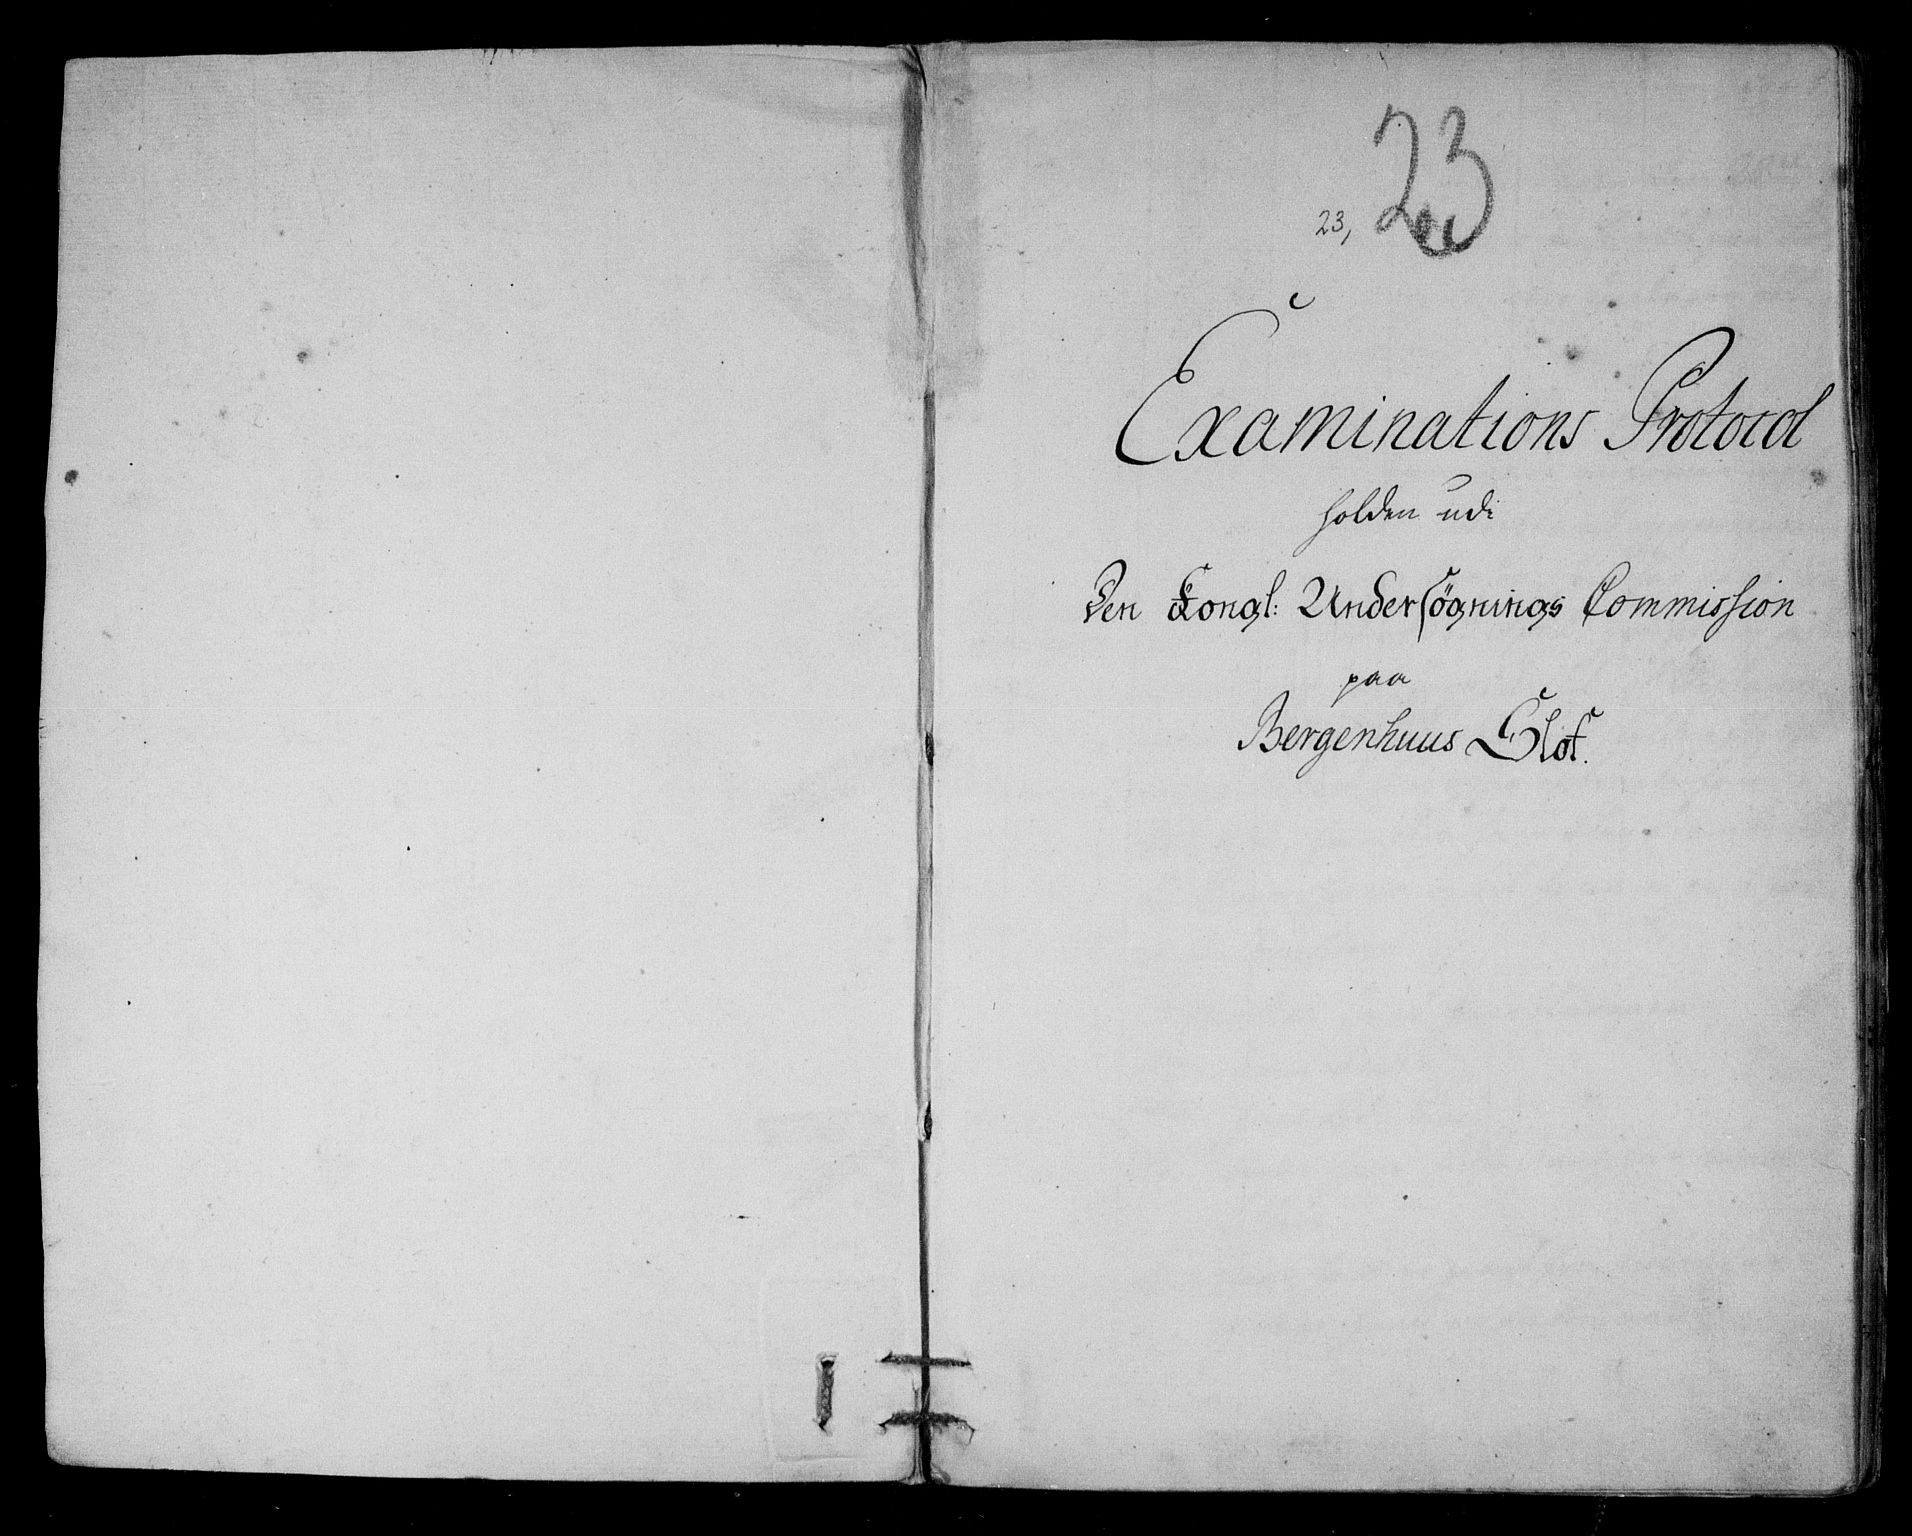 23
23,
Examinations Protocol
holden udi
Den Kongl: Undersøgnings Commission
paa
Bergenhuus Slot.